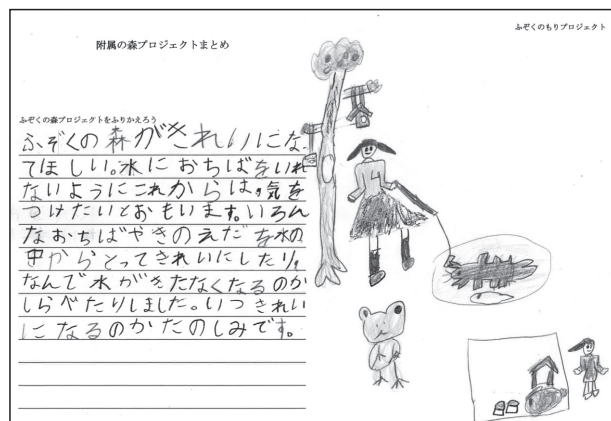 ふぞくのもりプロジェクト
附属の森プロジェクトまとめ
ふぞくの森プロジェクトをふりかえろう
ふぞくの森がきれいにな
てほしい。水におちばをいれ
ないようにこれからは、気を
つけたいとおもいます。いろん
なおちばやきのえだを水の
中からとってきれいにしたり、
なんで水がきたなくなるのか
しらべたりしました。いつきれい
になるのかたのしみです。